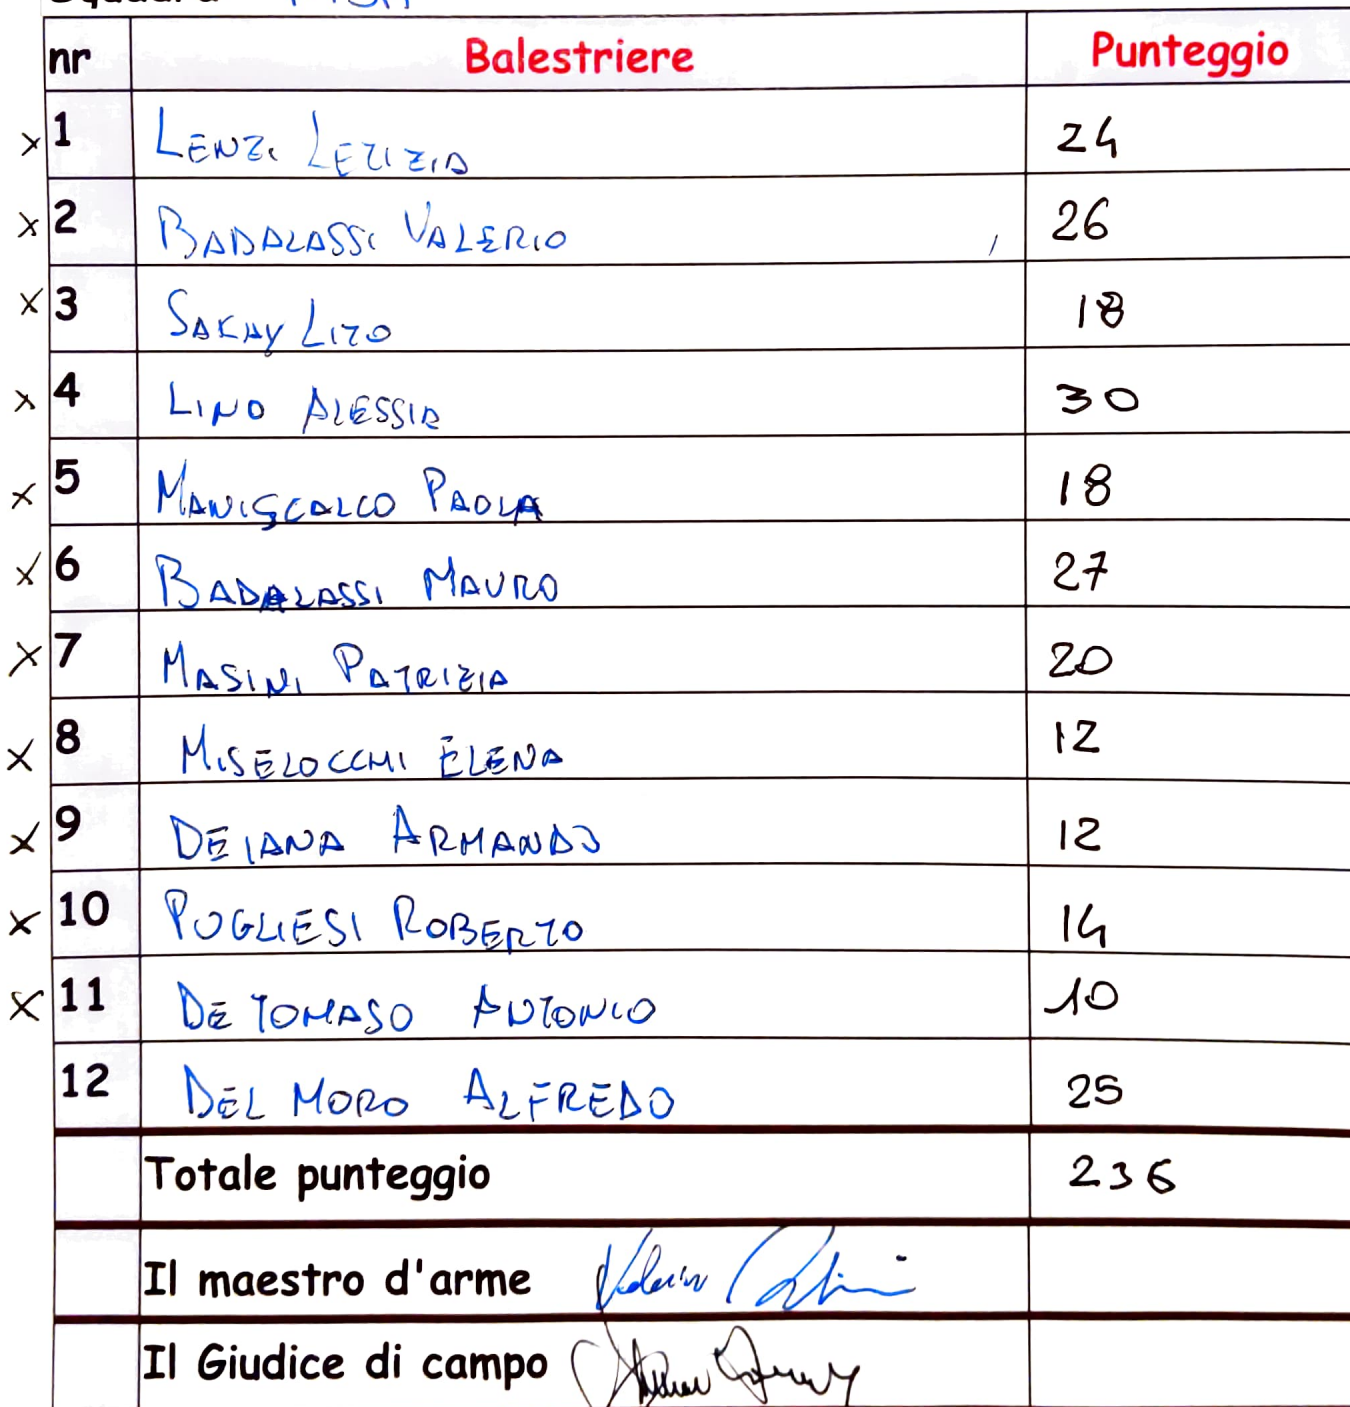 Squadra PISA
nr Balestriere Punteggio
x 1 LENZI LETIZIA 24
x 2 BADALASSI VALERIO 26
x 3 SAKAY LITO 18
x 4 LINO ALESSIA 30
x 5 MANISCALCO PAOLA 18
x 6 BADALASSI MAURO 27
x 7 MASINI PATRIZIA 20
x 8 MISELOCCHI ELENA 12
x 9 DEIANA ARMANDO 12
x 10 PUGLIESI ROBERTO 14
x 11 DE TOMASO ANTONIO 10
12 DEL MORO ALFREDO 25
Totale punteggio 236
Il maestro d'arme
Il Giudice di campo